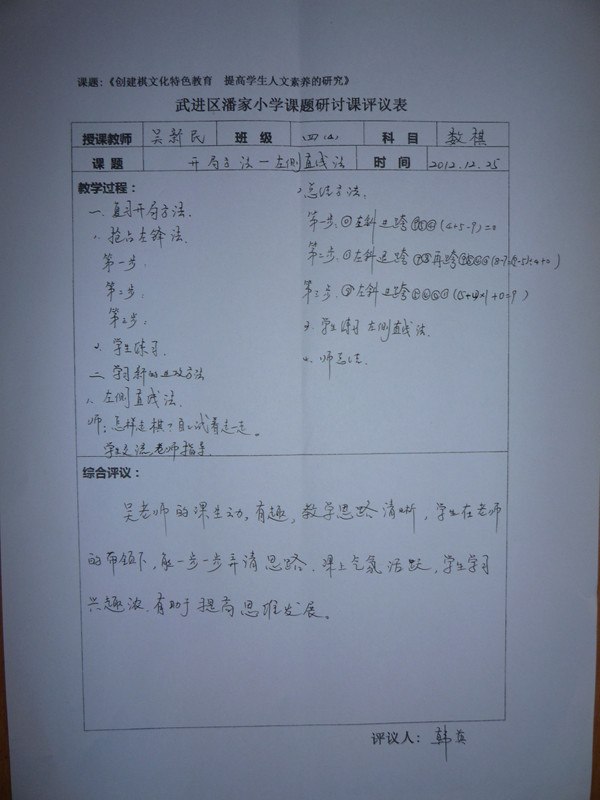 课题：《创建棋文化特色教育　提高学生人文素养的研究》
武进区潘家小学课题研讨课评议表
授课教师 吴新民 班级 四(4) 科目 数棋
课题 开局方法—左侧直线法 时间 2012.12.25
教学过程：
一、复习开局方法.
1、抢占左锋法.
第一步.
第二步：
第三步：
2. 学生练习.
二 学习新的进攻方法
1、左侧直线法.
师：怎样走棋？自己试着走一走。
学生交流,老师指导.
2总结方法.
第一步.⓪左斜
第二步.
第三步.
3. 学生练习左侧直线法.
4. 师总结.
综合评议：
吴老师的课生动,有趣，教学思路清晰，学生在老师
的带领下,能一步一步弄清思路.课上气氛活跃,学生学习
兴趣浓.有助于提高思维发展。
评议人：韩英